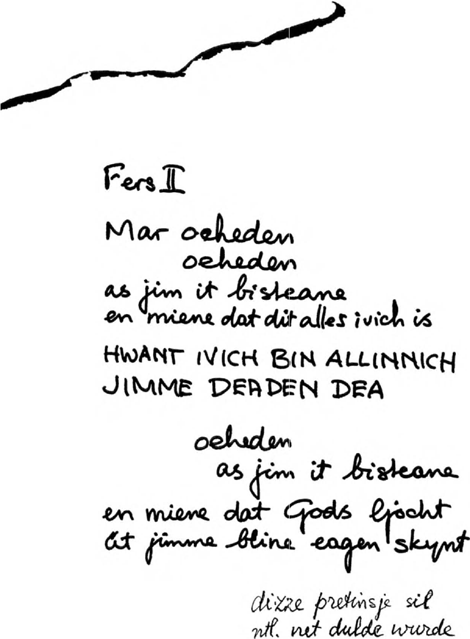 Fers II
Mar oeheden
oeheden
as jim it bisteane
en miene dat dit alles ivich is
HWANT IVICH BIN ALLINNICH
JIMME DEADEN DEA
oeheden
as jim it bisteane
en miene dat Gods ljocht
út jimme bline eagen skynt
dizze pretinsje sil
ntl. net dulde wurde